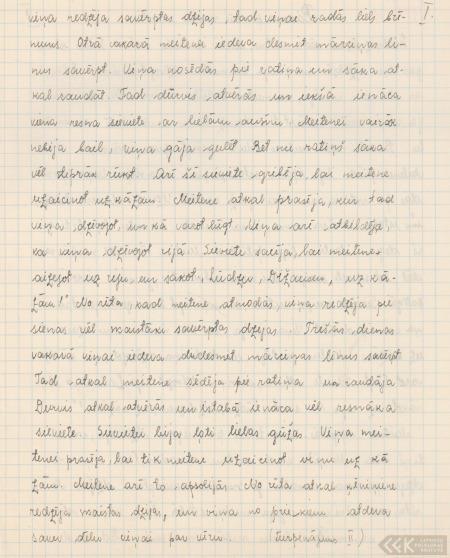 viņa redzēja savērptas dzijas, tad viņai radās liels brī- I.
nums. Otrā vakarā meitenei iedeva desmit mārciņas li-
nus savērpt. Viņa nosēdās pie ratiņa un sāka at-
kal raudāt. Tad durvis atvērās un iekšā ienāca
viena resna sieviete ar lielām ausīm. Meitenei vairāk
nebija bail, viņa gāja gulēt. Bet nu ratiņš sāka
vēl stiprāk rūkt. Arī šī sieviete gribēja, lai meitene
uzaicinot uz kāzām. Meitene atkal prasīja, kur tad
viņa dzīvojot, un kā varot lūgt. Viņa arī atbildēja,
ka viņa dzīvojot rijā. Sieviete sacīja, lai meitene
aizejot uz riju, un sakot, Lūdzu, Dižausien, uz kā-
zām!" No rīta, kad meitene atmodās, viņa redzēja pie
sienas vēl skaistāki savērptas dzijas. Trešās dienas
vakarā viņai iedeva divdesmit mārciņas linus savērpt
Tad atkal meitene sēdēja pie ratiņa un raudāja
Durvis atkal atvērās un istabā ienāca vēl resnāka
sieviete. Sievietei bija ļoti lielas gūžas. Viņa mei-
tenei prasīja, lai tik meitene uzaicinot viņu uz kā
zām. Meitene arī to apsolījās. No rīta atkal ķēniniene
redzēja skaistas dzijas, un viņa no priekiem atdeva
savu dēlu viņai par vīru. (Turpinājums II.)
LATVIEŠU FOLKLORAS KRĀTUVE